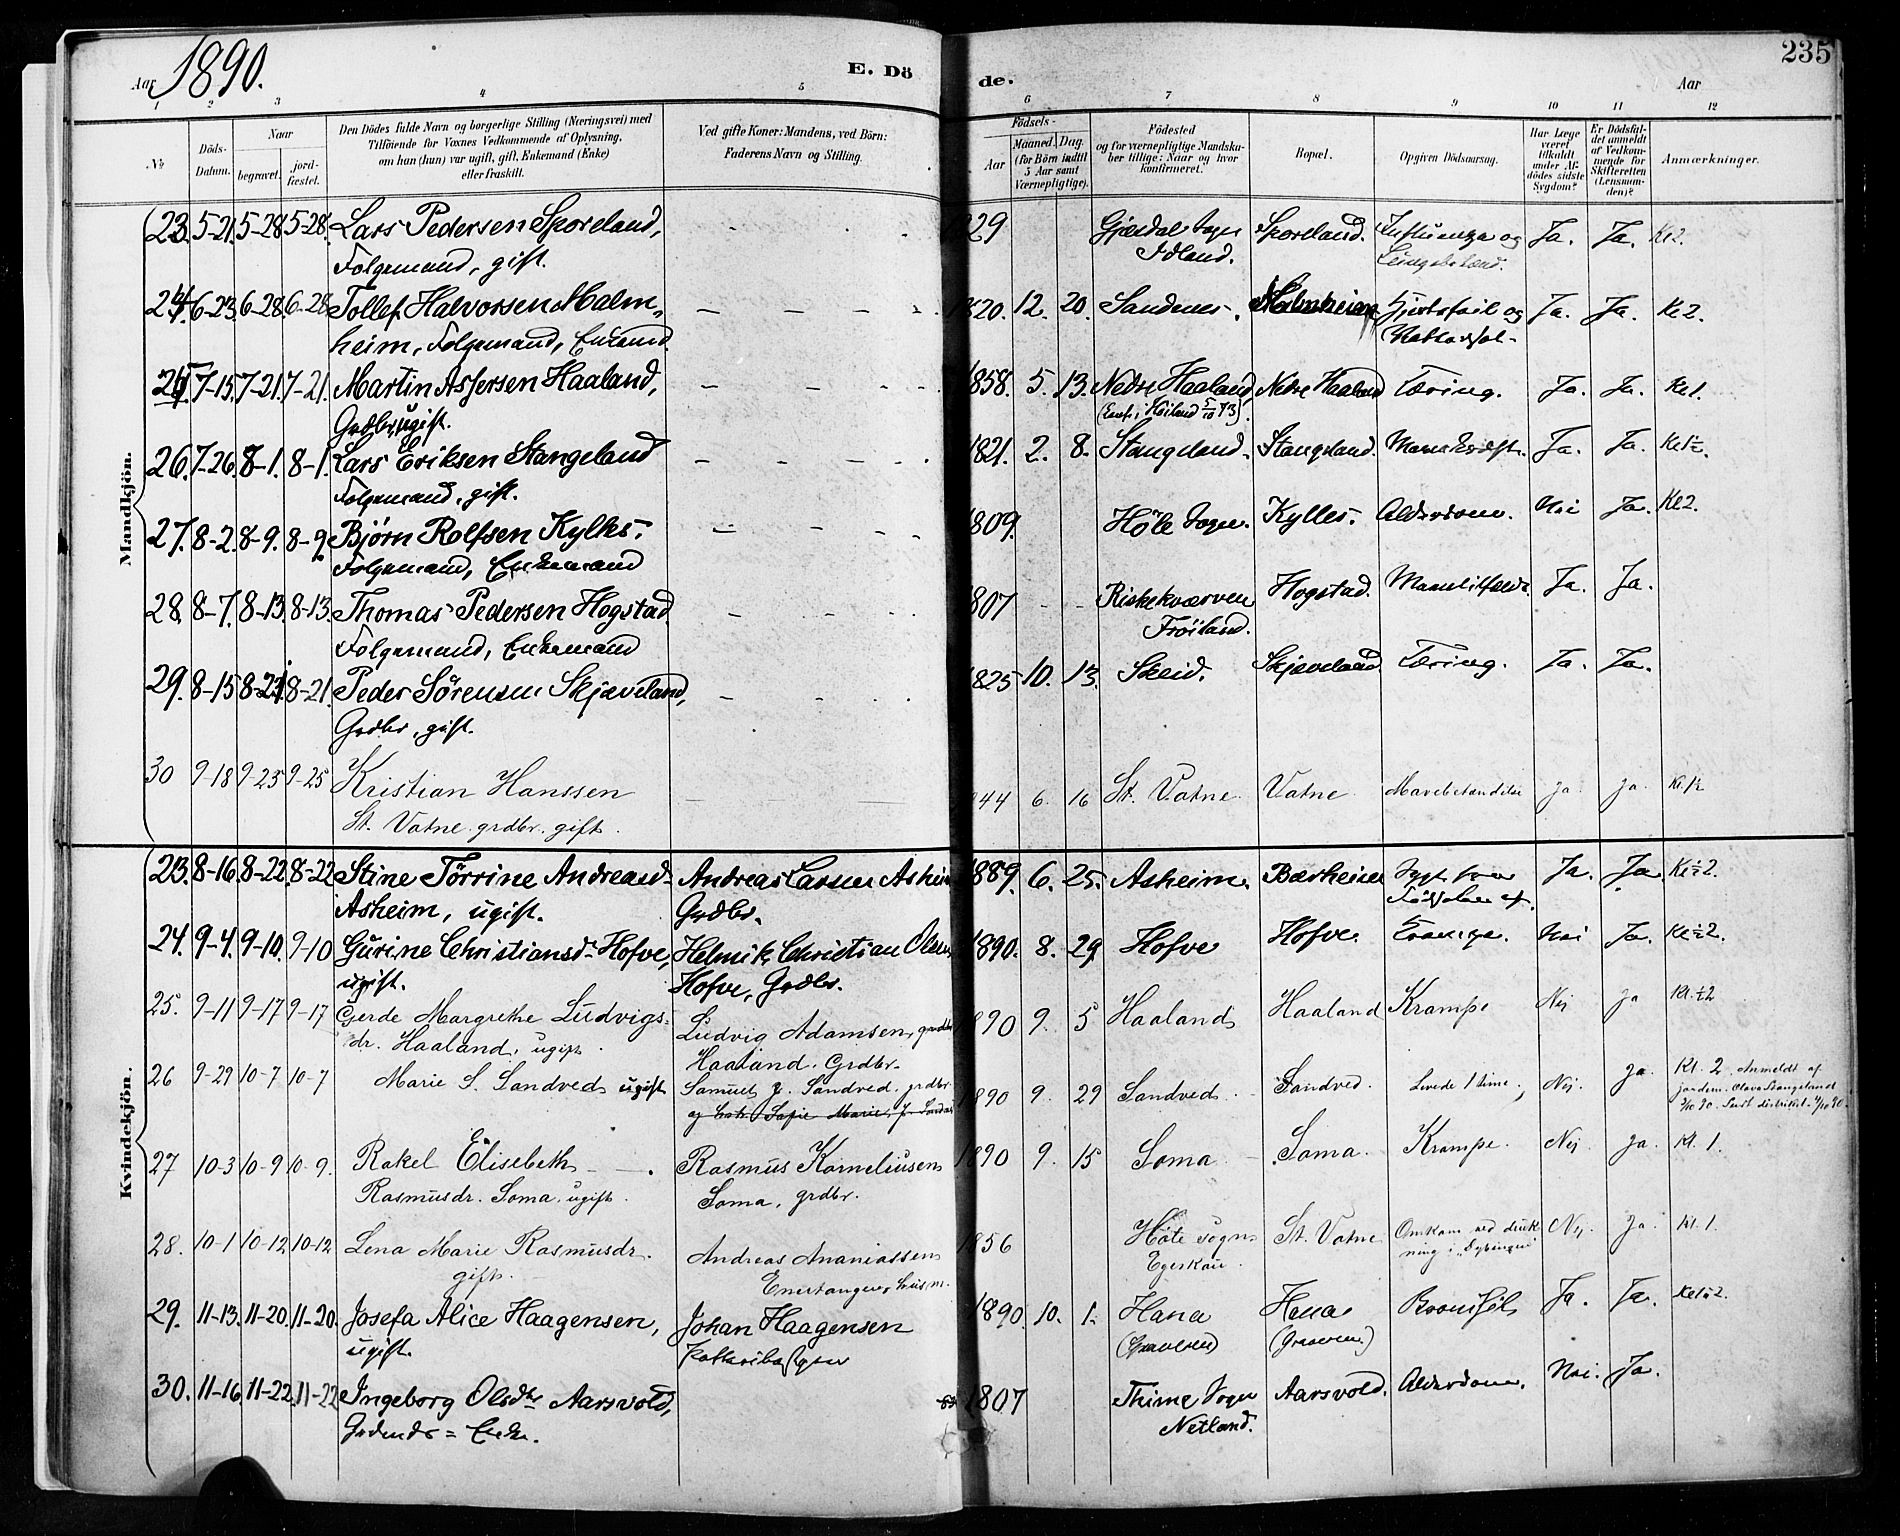 Aar 1890.
E. Dö
de.
Aar
235
1 2 3 4 5 6 7 8 9 10 11 12
№
Döds-Datum.
Naar
begravet.
jord-fæstet.
Den Dödes fulde Navn og borgerlige Stilling (Næringsvei) med
Tilföiende for Voxnes Vedkommende af Oplysning,
om han (hun) var ugift, gift, Enkemand (Enke)
eller fraskilt.
Ved gifte Koner: Mandens, ved Börn:
Faderens Navn og Stilling.
Födsels-
Aar
Maaned. Dag.
(for Börn indtil
5 Aar samt
Værnepligtige).
Födested
og for værnepligtige Mandska-
ber tillige: Naar og hvor
konfirmeret.
Bopæl.
Opgiven Dödsaarsag.
Har Læge
været
tilkaldt
under Af-
dödes sidste
Sygdom?
Er Dödsfal-
det anmeldt
af Vedkom-
mende for
Skifteretten
(Lensman-
den)?
Anmærkninger.
Mandkjön.
23. 5-21. 5-28. 5-28. Lars Pedersen Skoreland, 29 Gjesdal Sogn Skoreland. Influenza og Ja. Ja. Kl 2.
Folgemand, gift. Idland.
24. 6-23. 6-28. 6-28. Tollef Halvorsen Malm- 1820. 12. 20. Sandnes. Malmheim Hjertefeil og Ja. Ja. Kl 2.
heim, Folgemand, Enkemd.
25. 7-15. 7-21. 7-21. Martin Asgersen Haaland, 1858. 5. 13. Nedre Haaland Nedre Haaland Tæring. Ja. Ja. Kl 1.
Grdbr, ugift. (Conf. i Höiland 5/10 73)
26. 7-26. 8-1. 8-1. Lars Eriksen Stangeland 1821. 2. 8. Stangeland. Stangeland. Mavekræft. Ja. Ja. Kl 1½.
Folgemand, gift.
27. 8-2. 8-9. 8-9. Bjørn Rolfsen Kylles. 1809. Höle Sogn. Kylles. Alderdom. Nei Ja. Kl 2.
Folgemand, Enkemand
28. 8-7. 8-13. 8-13. Thomas Pedersen Hogstad 1807 Riskekværven Hogstad. Ja. Ja.
Folgemand, Enkemand Fröiland.
29. 8-15 8-21 8-21. Peder Sørensen Skjæveland, 1825 10. 13. Skeid. Skjæveland. Tæring. Ja. Ja.
Grdbr, gift.
30 9-18 9-25 9-25 Kristian Hanssen 44 6. 16 St. Vatne Vatne Mavebetændelse ja ja. Kl. ½
St. Vatne. grdbr. gift.
Kvindekjön.
23. 8-16. 8-22. 8-22 Stine Törrine Andreasd. Andreas Larsen Asheim 1889. 6. 25. Asheim. Bærheim Sygt fra Ja. Ja. Kl ½ 2.
Asheim, ugift. Grdbr. Födselen af.
24. 9-4. 9-10. 9-10 Gurine Christiansd. Hofve, Helmik Christian Olsen 1890. 8. 29 Hofve Hofve. Krampe. Nei Ja. Kl ½ 2.
ugift. Hofve, Grdbr.
25. 9-11 9-17 9-17 Gerde Margrethe Ludvigs- Ludvig Adamsen, grdbr 1890 9. 5 Haaland Haaland Krampe Nej ja Kl. ½ 2
dr. Haaland, ugift. Haaland. Grdbr.
26 9-29 10-7 10-7 Marie S. Sandved ugift Samuel J. Sandved, grdbr. 1890 9. 29 Sandved. Sandved. Levede 1 time. Nej. ja. Kl. 2. Anmeldt af
jordem. Olava Stangeland
27 10-3 10-9 10-9. Rakel Elisabeth Rasmus Korneliusen 1890 9. 15 Soma Soma. Krampe. Nej ja. Kl. 1.
Rasmusdr. Soma, ugift. Soma, grdbr.
28. 10-1 10-12 10-12 Lena Marie Rasmusdr. Andreas Ananiassen 1856 Høle sogn St. Vatne Omkom ved druk- Nej. ja. Kl. 1.
gift. husm. Egeskau. ning i "Dybingen"
29. 11-13. 11-20. 11-20. Josefa Alice Haagensen, Johan Haagensen 1890. 10. 1. Hana Hana Ja. Ja. Kl 1½ 2.
ugift. (Graaveren) (Graaveren.)
30. 11-16. 11-22. 11-22 Ingeborg Olsdtr Aarsvold, 1807 Thime Sogn Aarsvold. Alderdom. Nei. Ja.
Grdmds = Enke. Netland.